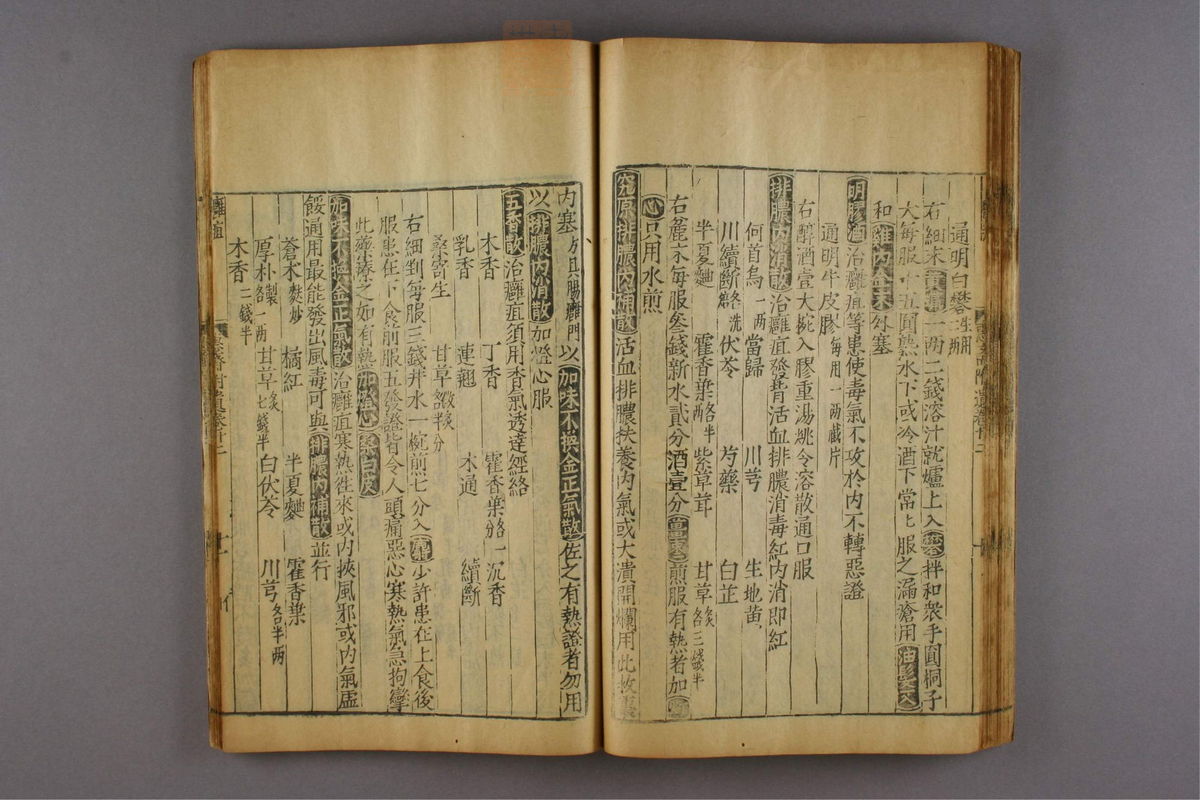 通明白礬
右細末黃蠟一兩二錢溶汁就爐上入礬拌和衆手圓桐子
大每服十五圓熟水下或冷酒下常上服之漏瘡用油髮灰
和雞內金末外塞
明膠酒治癰疽等患使毒氣不攻於內不轉惡證
通明牛皮膠每用一兩截片
右醇酒壹大椀入膠重湯姚令溶散通口服
排膿內消散治癰疽發背活血排膿消毒紅內消即紅
何首烏一兩 當歸 川芎 生地黃
川續斷洗 伏苓 芍藥 白芷
半夏麯 藿香葉各半 紫草茸 甘草炙各三錢半
右麄末每服叁錢新水貳分酒壹分薑棗煎服有熱者加燈
心只用水煎
究原排膿內補散活血排膿扶養內氣或大潰開爛用此
內塞方具腸癰門以加味不換金正氣散佐之有熱證者勿用
以排膿內消散加燈心服
五香散治癰疽須用香氣透達經絡
木香 丁香 藿香葉各一分 沉香
乳香 連翹 木通 續斷
桑寄生 甘草炙各半分
右細剉每服三錢井水一椀煎七分入麝少許患在上食後
服患在下食前服五發證皆令人頭痛惡心寒熱氣急拘攣
此藥療之如有熱加燈心桑白皮
加味不換金正氣散治癰疽寒熱往來或內挾風邪或內氣虛
餒通用最能發出風毒可與排膿內補散並行
蒼朮麩炒 橘紅 半夏麯 藿香葉
厚朴製各一兩 甘草炙七錢半 白伏苓 川芎各半兩
木香二錢半
癰疽